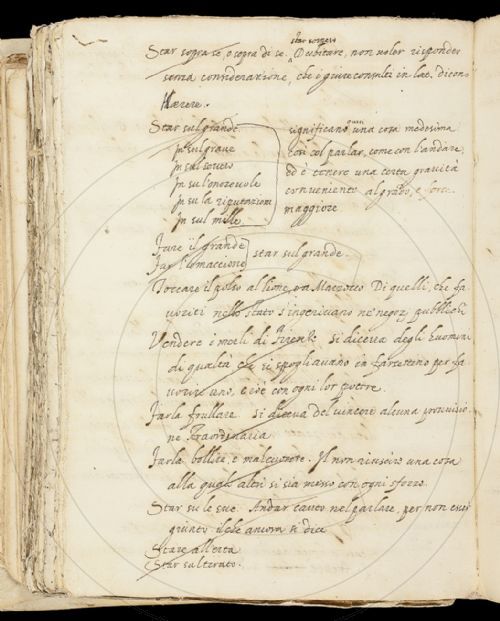 star sospeso
Star sopra se, o sopra di se. Dubitare, non voler risponder
senza considerazione, che i giurecconsulti in lat. dicono
Hærere.
Star sul grande
In sul grave
In sul severo
In su l'onorevole
In su la riputazione
In sul mille
significano una cosa medesima
così col parlar, come con l'andare
ed è tenere una certa gravità
conveniente al grado, e forse
maggiore
Fare il grande
Far l'omaccione
star sul grande.
Toccare il polso al lione, o a Marzocco Di quelli, che fa
voriti nello stato s'ingerivano ne' negozj pubblici
Vendere i merli di Firenze si diceva degli huomini
di qualità che si spogliavano in farsettino per fa
vorire uno, e cioè con ogni lor potere.
Farla frullare si diceva del vincere alcuna provvisio
ne straordinaria
Farla bollire, e mal cuocere. Il non riuscire una cosa
alla quale altri si sia messo con ogni sforzo.
Star su le sue. Andar cauto nel parlare, per non esser
giunto il che ancora si dice
Stare all'erta
Star sulterato.